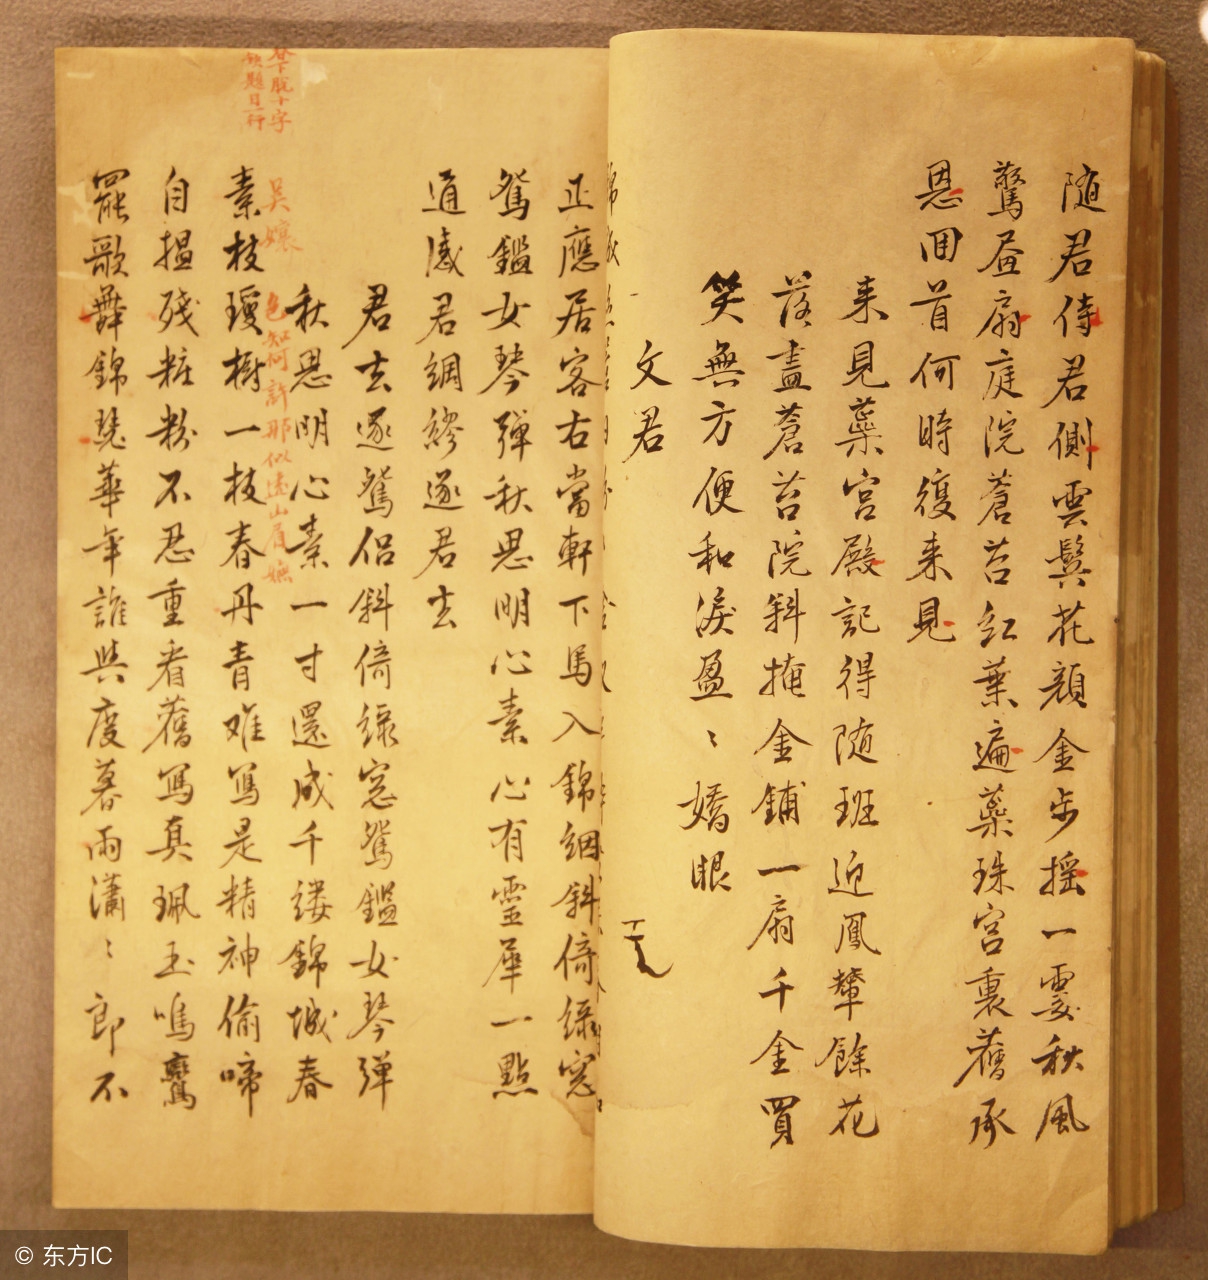 随君侍君側雲鬓花顔金步摇一霎秋風
驚畫扇庭院蒼苔红葉遍蕊珠宫裏舊承
恩囬首何時復来見
来見蕊宫殿記得随班迎鳳輦餘花
落盡蒼苔院斜掩金鋪一扇千金買
笑無方便和淚盈〻嬌眼
文君
正應居客右當軒下馬入錦絪斜倚緑窓
鴛鑑女琴弹秋思明心素心有靈犀一點
通感君綢繆逐君去
君去逐鴛侣斜倚緑窓鴛鑑女琴弹
秋思明心素一寸還成千缕錦城春
色知何許那似遠山眉嫵
吴孃
素枝瓊樹一枝春丹青难寫是精神偷啼
自揾殘粧粉不忍重看舊寫真珮玉鳴鸞
罷歌舞錦瑟華年誰與度暮雨瀟〻郎不
春下脱十字
題目一行
© 东方IC